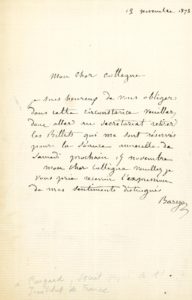 13 novembre 1873
Mon cher collègue
je suis heureux de vous obliger
dans cette circonstance veuillez
donc aller au secrétariat retirer
les Billets qui me sont réservés
pour la séance annuelle de
samedi prochain 15 novembre
mon cher collègue veuillez je
vous prie recevoir l'expression
de mes sentiments distingués
Barye
de France